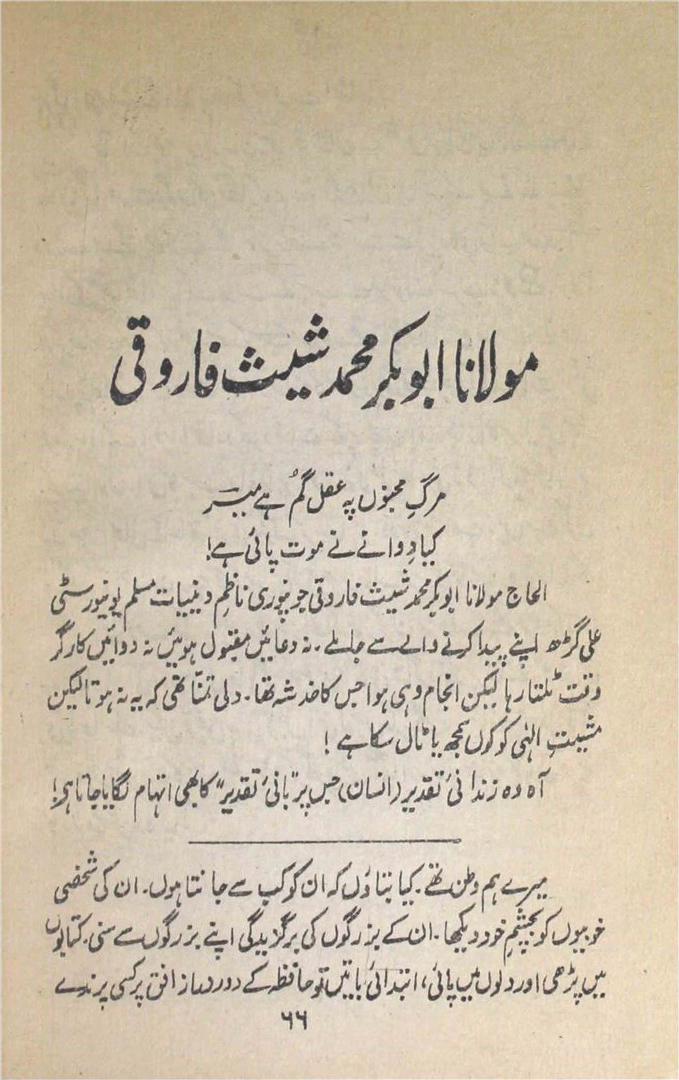 مولانا ابوبکر محمد شیث فاروقی
مرگِ مجنوں پہ عقل گم ہے میرؔ
کیا دوانے نے موت پائی ہے!
الحاج مولانا ابوبکر محمد شیث فاروقی جونپوری ناظم دینیات مسلم یونیورسٹی
علی گڑھ اپنے پیدا کرنے والے سے جا ملے۔ نہ دعائیں مقبول ہوئیں نہ دوائیں کارگر
وقت ٹلتا رہا لیکن انجام وہی ہوا جس کا خدشہ تھا۔ دلی تمنا تھی کہ یہ نہ ہوتا لیکن
مشیت الٰہی کو کون سمجھ یا ٹال سکا ہے!
آہ وہ زندانیٔ تقدیر (انسان) جس پر "بانیٔ تقدیر" کا بھی اتہام لگایا جاتا ہو!
میرے ہم وطن تھے۔ کیا بتاؤں کہ ان کو کب سے جانتا ہوں۔ ان کی شخصی
خوبیوں کو بچشم خود دیکھا۔ ان کے بزرگوں کی برگزیدگی اپنے بزرگوں سے سنی۔ کتابوں
میں پڑھی اور دلوں میں پائی، ابتدائی باتیں تو حافظہ کے دور دراز افق پر کسی پرندے
۶۶